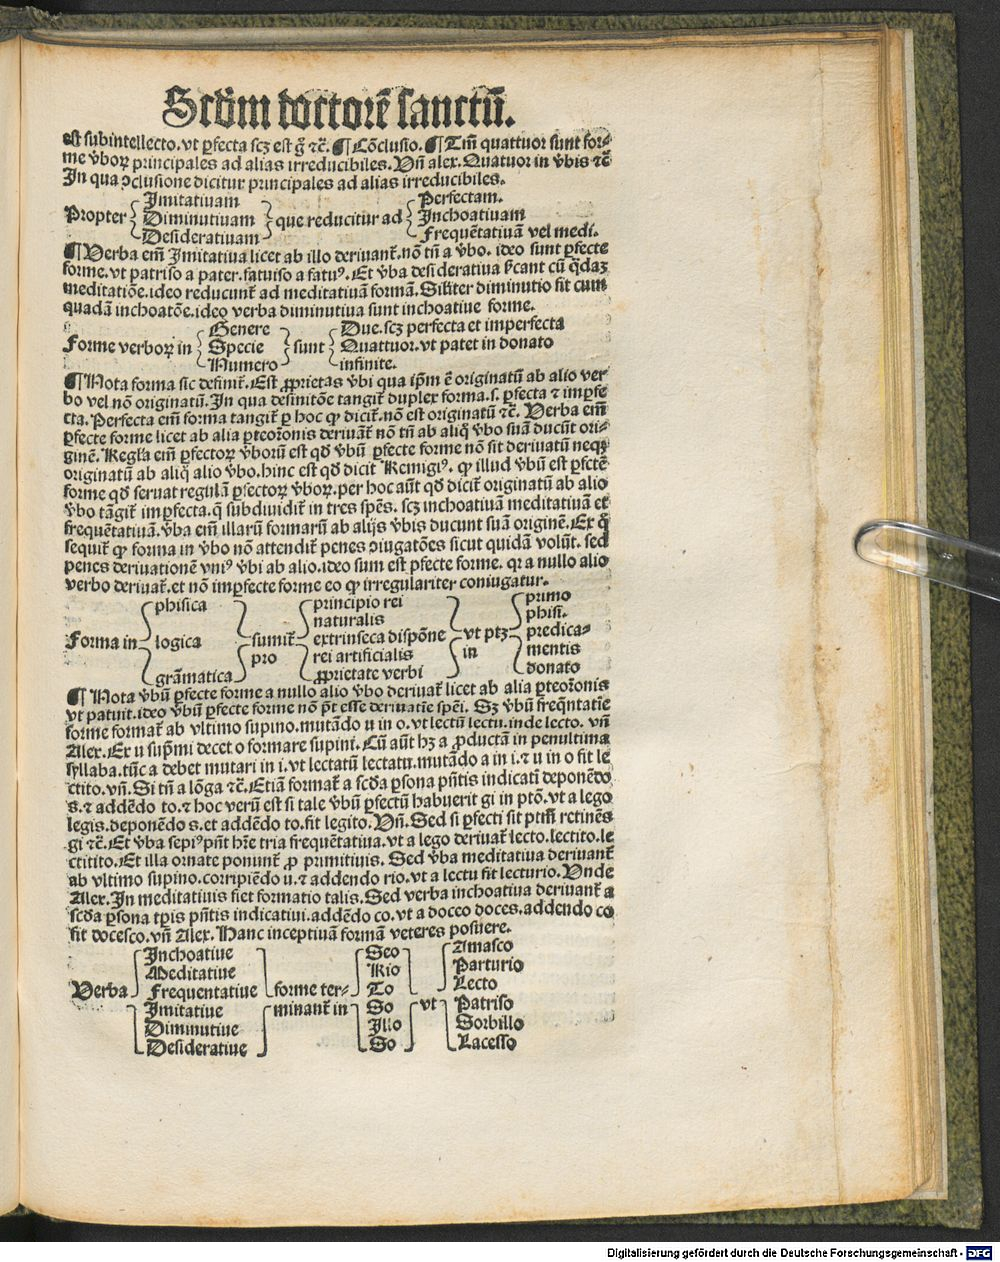 Scd̃m doctorẽ sanctũ.
est subintellecto.vt ꝑfecta scꝫ est g̃ ⁊c̃.¶Cõclusio.¶Tm̃ quattuor sunt for-
me v̑boꝝ principales ad alias irreducibiles. Vñ alex. Quatuor in v̑bis ⁊c̃
In qua ꝯclusione dicitur principales ad alias irreducibiles.
Propter { Imitatiuam Diminutiuam Desideratiuam } que reducitur ad { Perfectam. Inchoatiuam Frequẽtatiuã vel medi.
¶Verba em̃ Imitatiua licet ab illo deriuant᷑.nõ tñ a v̑bo. ideo sunt ꝑfecte
forme.vt patriso a pater.fatuiso a fatuꝰ. Et v̑ba desideratiua ſcant cũ q̃daꝫ
meditatiõe.ideo reducunt᷑ ad meditatiuã formã. Sil̃iter diminutio fit cum
quadã inchoatõe.ideo verba diminutiua sunt inchoatiue forme.
Forme verboꝝ in { Genere Specie Numero } sunt { Due.scꝫ perfecta et imperfecta Quattuor.vt patet in donato infinite.
¶Nota forma sic definit᷑. Est ꝓprietas v̑bi qua ip̃m ẽ originatũ ab alio ver
bo vel nõ originatũ. In qua definitõe tangit᷑ duplex forma.s. ꝑfecta ⁊ imꝑfe
cta. Perfecta em̃ forma tangit᷑ ꝑ hoc ꝙ dicit᷑.nõ est originatũ ⁊c̃. Verba em̃
ꝑfecte forme licet ab alia ꝑteor̃onis deriuãt᷑ nõ tñ ab aliq̃ v̑bo suã ducũt ori-
ginẽ. Regl̃a em̃ ꝑfectoꝝ v̑borũ est qd̃ v̑bũ ꝑfecte forme nõ sit deriuatũ neqꝫ
originatũ ab aliq̃ alio v̑bo.hinc est qd̃ dicit Remigiꝰ. ꝙ illud v̑bũ est ꝑfctẽ
forme qd̃ seruat regulã ꝑfectoꝝ v̑boꝝ.per hoc aũt qd̃ dicit᷑ originatũ ab alio
v̑bo tãgit᷑ imꝑfecta.q̃ subdiuidit᷑ in tres sp̃es. scꝫ inchoatiuã meditatiuã et
frequẽtatiuã. v̑ba em̃ illarũ formarũ ab alijs v̑bis ducunt suã originẽ. Ex q̃
sequit᷑ ꝙ forma in v̑bo nõ attendit᷑ penes ꝯiugatões sicut quidã volũt. sed
penes deriuationẽ vniꝰ v̑bi ab alio.ideo sum est ꝑfecte forme. qꝛ a nullo alio
verbo deriuat᷑.et nõ imꝑfecte forme eo ꝙ irregulariter coniugatur.
Forma in { phisica logica grãmatica } sumit᷑ pro { principio rei naturalis extrinseca dispõne rei artificialis ꝓprietate verbi } vt ptꝫ in { primo phisi. predica- mentis donato
¶Nota v̑bũ ꝑfecte forme a nullo alio v̑bo deriuat᷑ licet ab alia ꝑteor̃onis
vt patuit.ideo v̑bũ ꝑfecte forme nõ p̃t esse deriuatĩe spẽi. Sꝫ v̑bũ freq̃ntatĩe
forme format᷑ ab vltimo supino.mutãdo u in o.vt lectũ lectu.inde lecto. vñ
Alex. Ex u sup̃mi decet o formare supinĩ. Cũ aũt hꝫ a ꝓductã in penultima
syllaba.tũc a debet mutari in i.vt lectatũ lectatu.mutãdo a in i.⁊ u in o fit le
ctito.vñ. Si tñ a lõga ⁊c̃. Etiã format᷑ a scd̃a ꝑsona pñtis indicatĩ deponẽdo
s.⁊ addẽdo to.⁊ hoc verũ est si tale v̑bũ ꝑfectũ habuerit gi in ptõ.vt a lego
legis.deponẽdo s.et addẽdo to.fit legito. Vñ. Sed si ꝑfecti sit ptm̃ retinẽs
gi ⁊c̃. Et v̑ba sepiꝰ pñt hr̃e tria frequẽtatiua.vt a lego deriuat᷑ lecto.lectito.le
ctitito. Et illa ornate ponunt᷑ ꝓ primitiuis. Sed v̑ba meditatiua deriuant᷑
ab vltimo supino.corripiẽdo u.⁊ addendo rio.vt a lectu fit lecturio. Vnde
Alex. In meditatiuis fiet formatio talis. Sed verba inchoatiua deriuant᷑ a
scd̃a ꝑsona tp̃is pñtis indicatiui.addẽdo co.vt a doceo doces.addendo co
fit docesco.vñ Alex. Hanc inceptiuã formã veteres posuere.
Verba { Inchoatiue Meditatiue Frequentatiue Imitatiue Diminutiue Desideratiue } forme ter- minant᷑ in { Sco Rio To So Illo So } vt { Amasco Parturio Lecto Patriso Sorbillo Lacesso
Digitalisierung gefördert durch die Deutsche Forschungsgemeinschaft - DFG